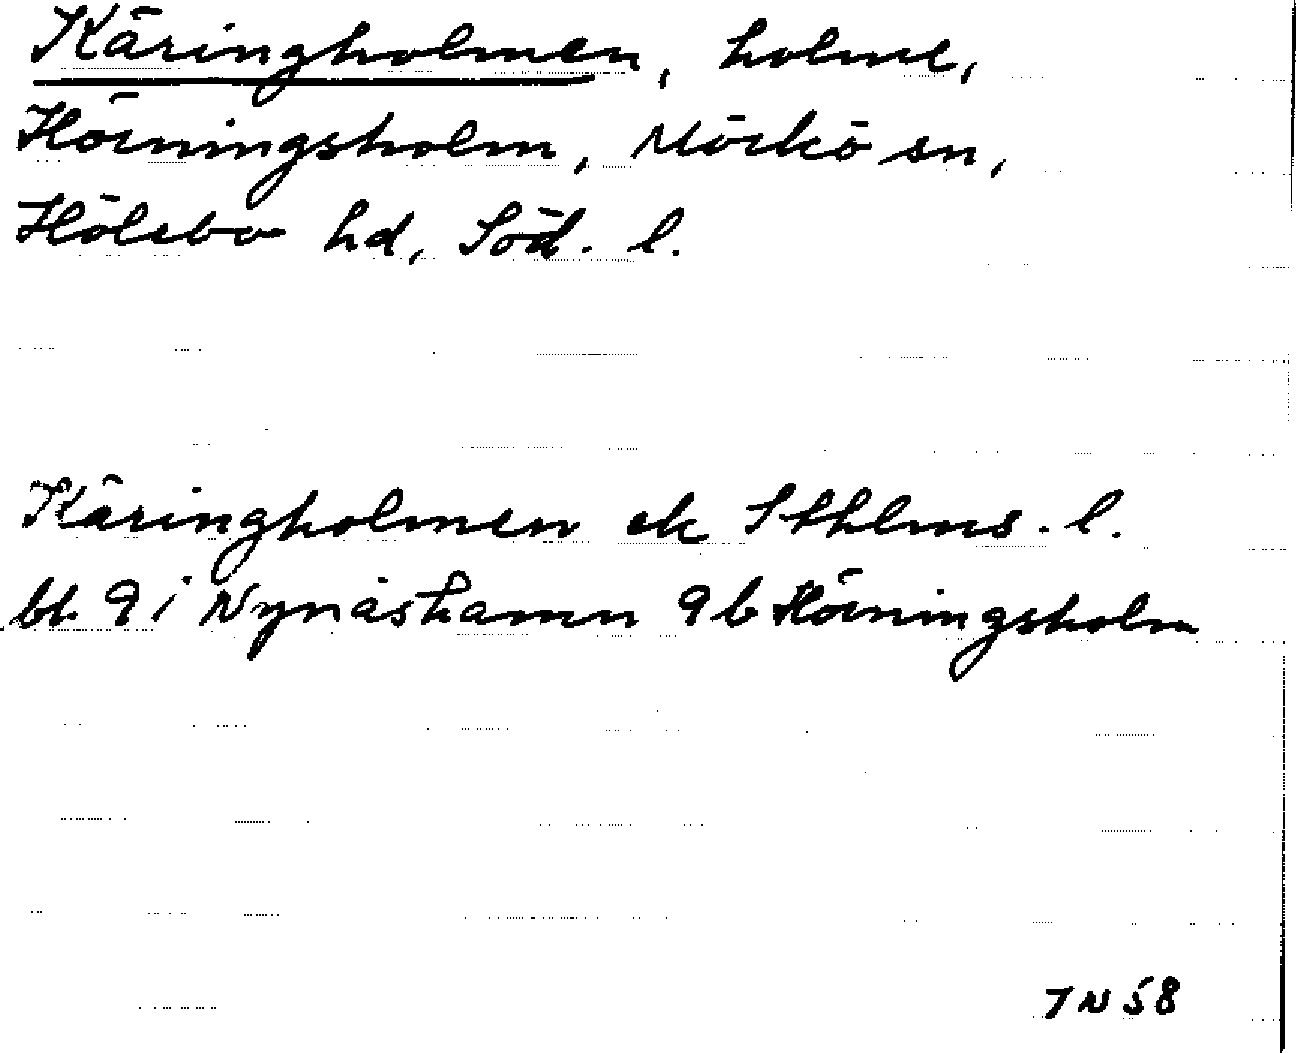 Käringholmen, holme,
Hörningsholm, Mörkö sn,
Hölebo hd, Söd. l.
Käringholmen ek Sthlms. l.
bl. 9 i Nynäshamn 9b Hörningsholm
TN 58